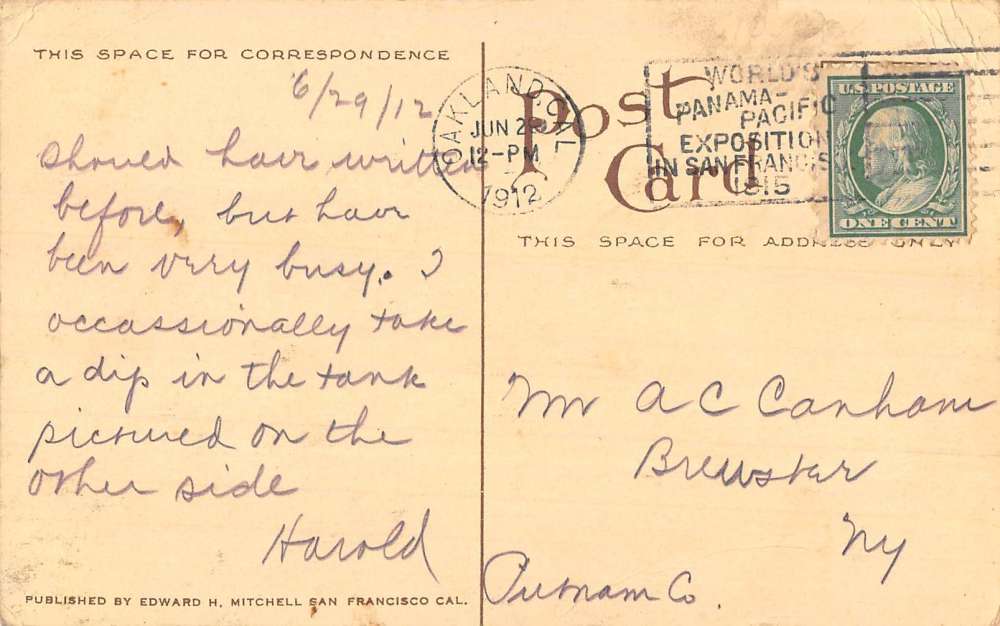 THIS SPACE FOR CORRESPONDENCE
6/29/12
should have written
before, but have
been very busy. I
occassionally take
a dip in the tank
pictured on the
other side
Harold
PUBLISHED BY EDWARD H. MITCHELL SAN FRANCISCO CAL.
Post
Card
OAKLAND, CAL
JUN 29
12-PM
1912
WORLD'S
PANAMA-
PACIFIC
EXPOSITION
IN SAN FRANCISCO
1915
U.S. POSTAGE
ONE CENT
THIS SPACE FOR ADDRESS ONLY
Mr A C Canham
Brewster
Ny
Putnam Co.